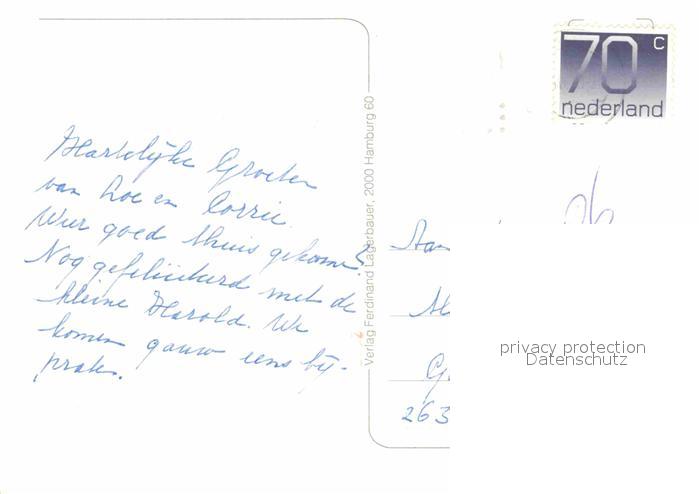 70 c
nederland
Hartelijke Groeten
van Loe en Corrie.
Weer goed thuis gekomen?
Nog gefeliciteerd met de
kleine Harold. We
komen gauw eens bij-
praten.
Verlag Ferdinand Lagerbauer, 2000 Hamburg 60
Aan
G
263
privacy protection
Datenschutz